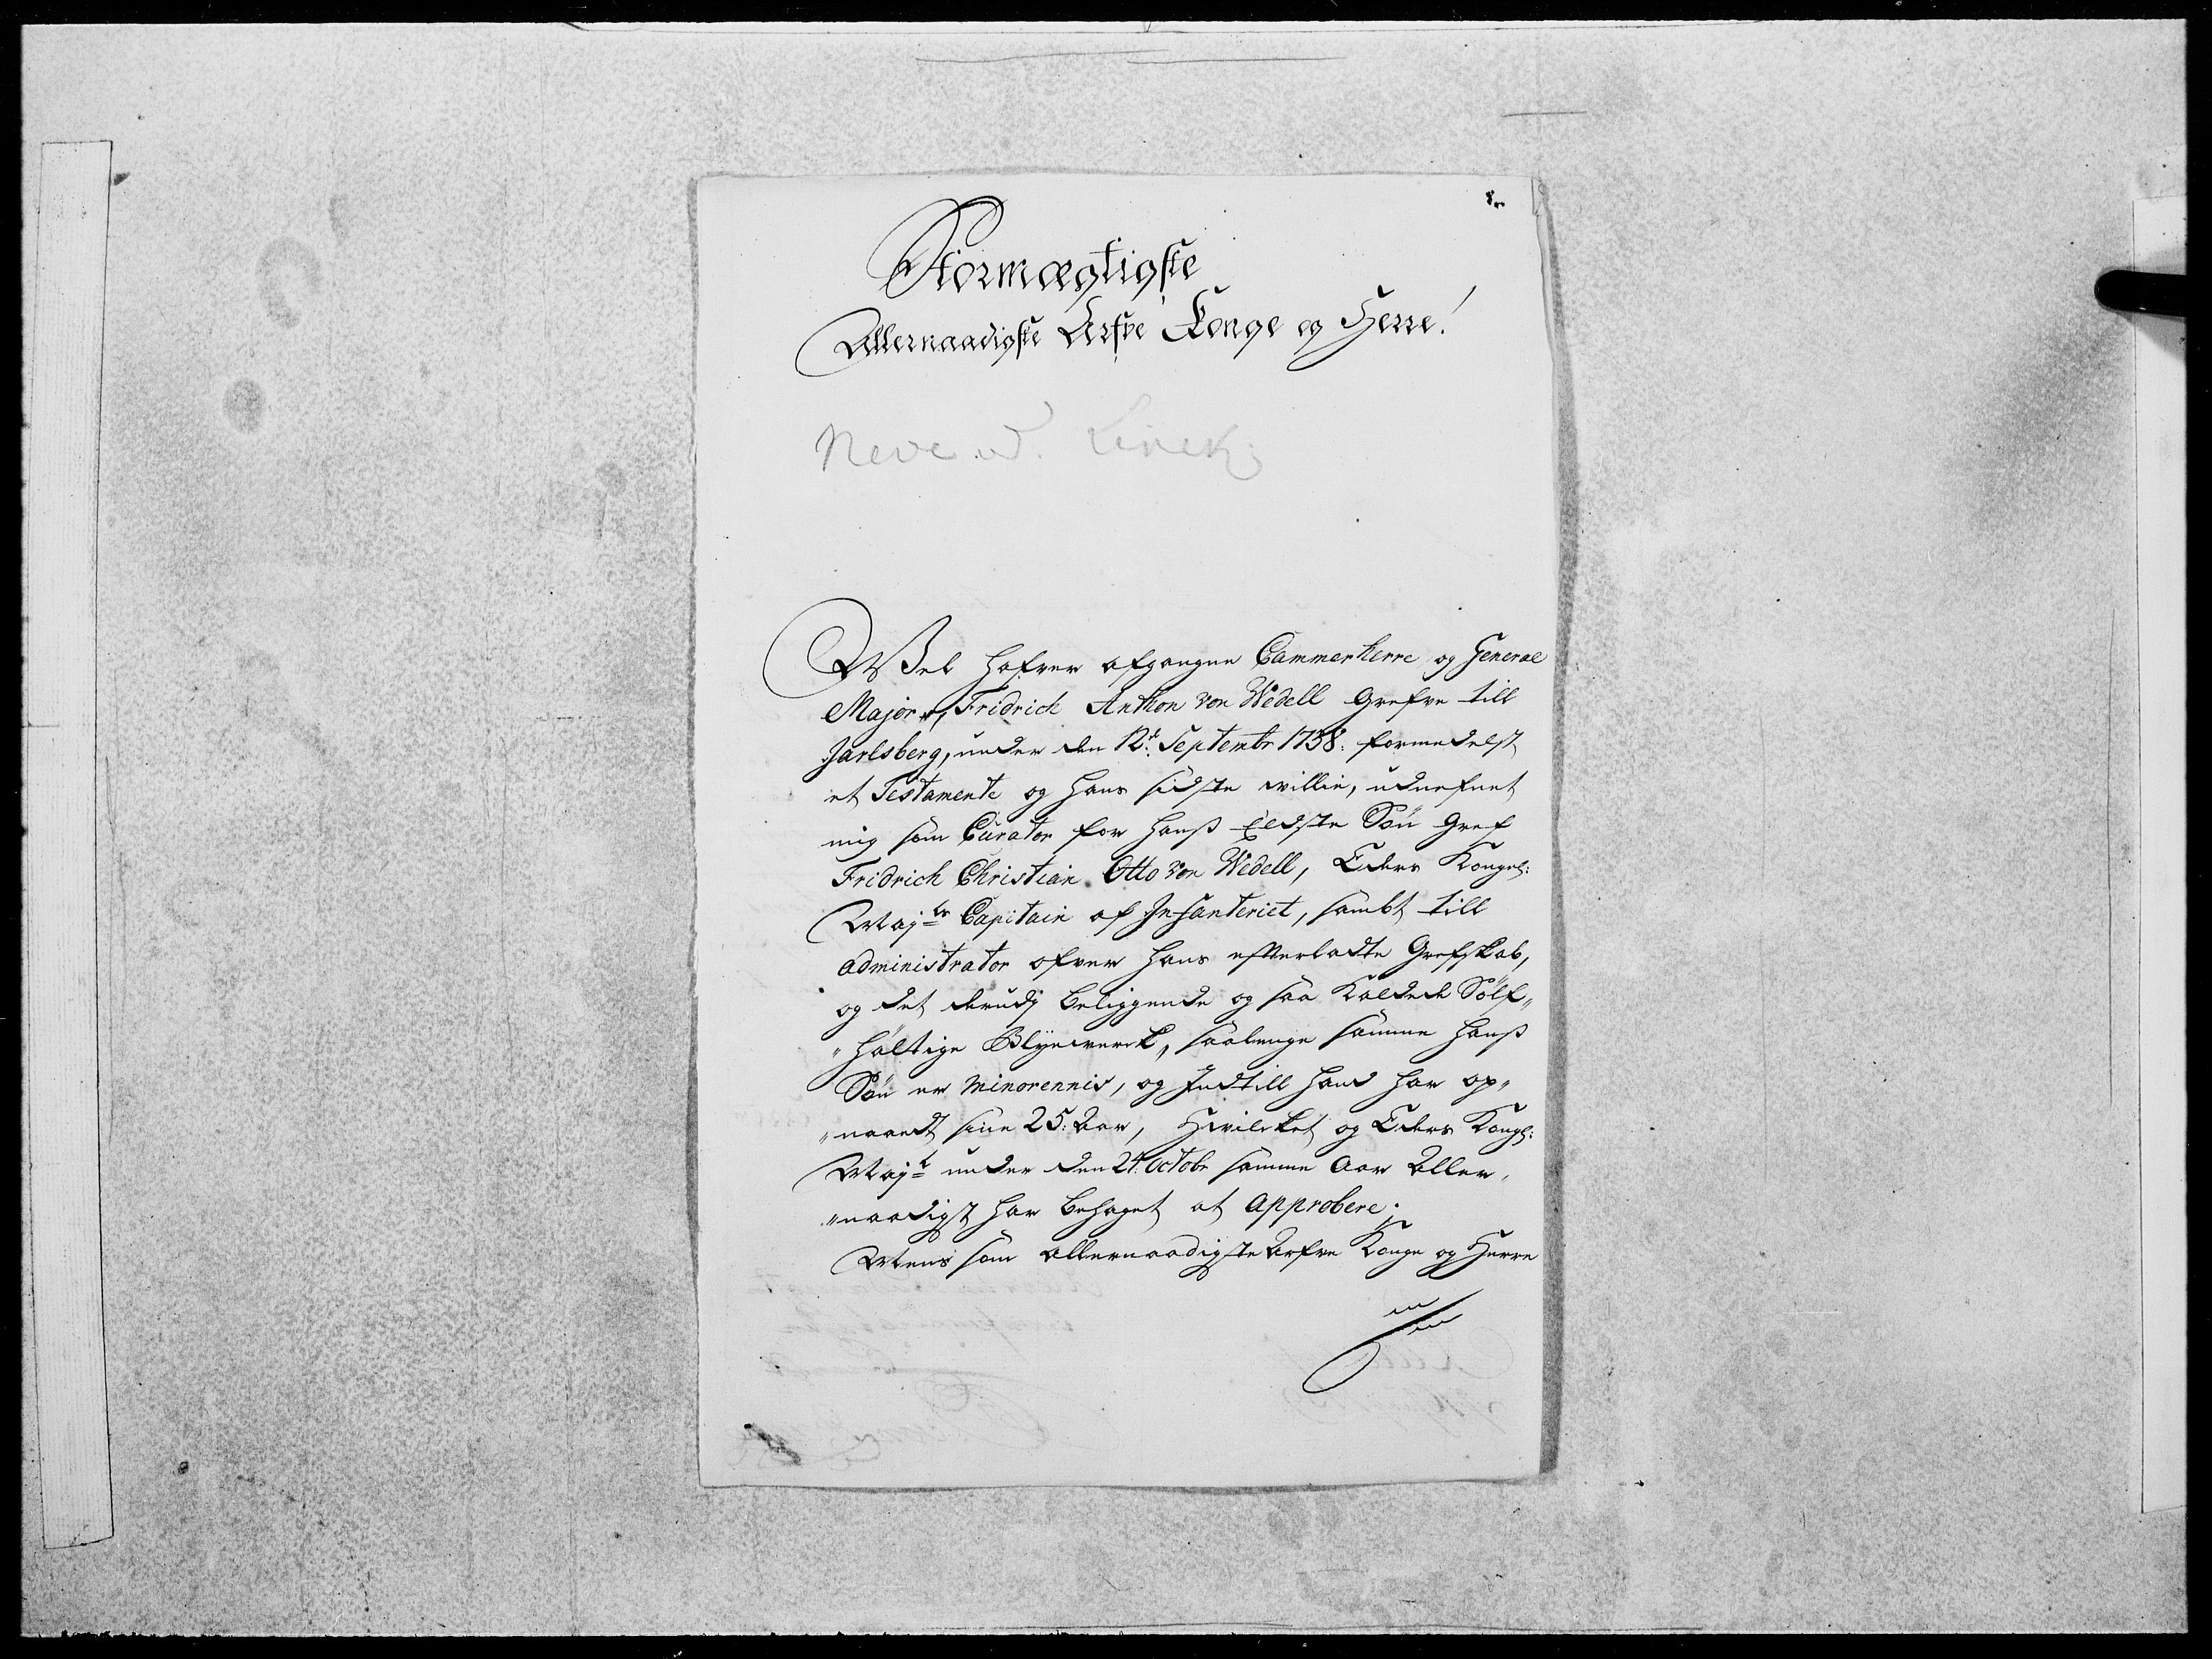 Stormægtigste
Allernaadigste Arfve Konge og Herre!
Vel hafver afgangne Cammerherre og General
Major, Fridrich Anthon von Wedell Grefve till
Jarlsberg, under den 12t. Septembr 1738. formedelst
et Testamente og Hans sidste willie, udnefnet
mig som Curator for Hanß Eldste Søn Gref
Fridrich Christian Otto von Wedell, Eders Kongel:
Majts Capitain af Infanteriet, sambt till
administrator ofver Hans efterladte Grefskab,
og det derudj beliggende og saa Kaldede Sølf„
„holtige Blyeverck, saalenge samme Hanß
Søn er Minorennis, og Indtill Hand har op„
„naaedt sine 25: Aar, Hvilcket og Eders Kongl:
Majt under den 24. Octobr samme Aar Aller„
„naadigst har behaget at approbere;
Mens som allernaadigste Arfve Konge og Herre